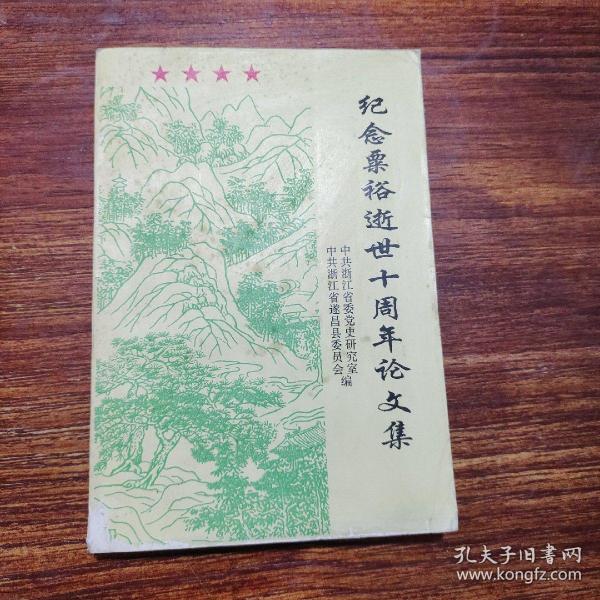 纪念粟裕逝世十周年论文集
中共浙江省委党史研究室
中共浙江省遂昌县委员会
编
孔夫子旧书网
www.kongfz.com